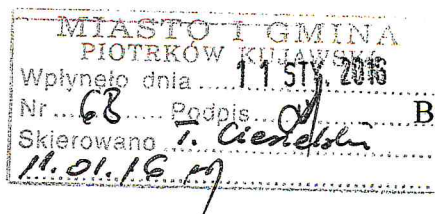 MIASTO I GMINA
PIOTRKÓW KUJAWSKI
Wpłynęło dnia 11 STY. 2016
Nr 68 Podpis B
Skierowano T. Ciesielski
11.01.16